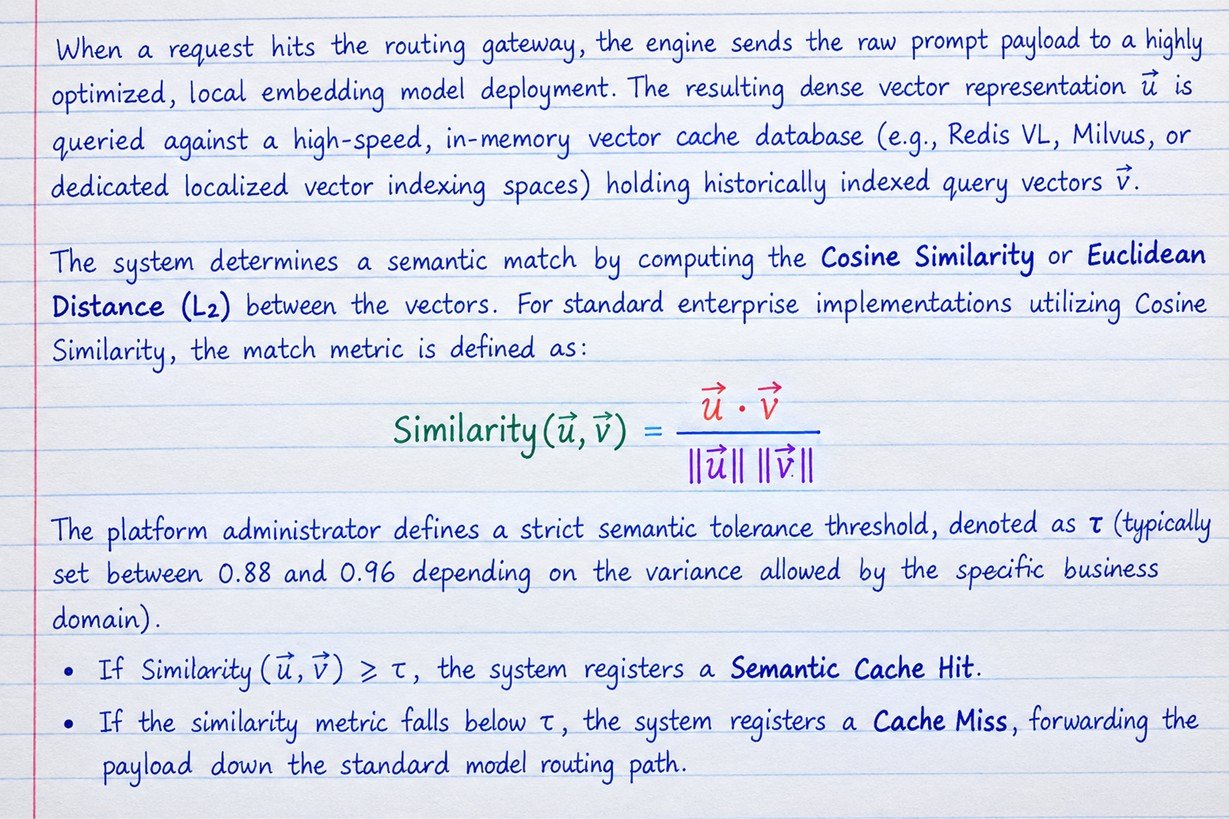 When a request hits the routing gateway, the engine sends the raw prompt payload to a highly
optimized, local embedding model deployment. The resulting dense vector representation u⃗ is
queried against a high-speed, in-memory vector cache database (e.g., Redis VL, Milvus, or
dedicated localized vector indexing spaces) holding historically indexed query vectors v⃗.
The system determines a semantic match by computing the Cosine Similarity or Euclidean
Distance (L₂) between the vectors. For standard enterprise implementations utilizing Cosine
Similarity, the match metric is defined as:
Similarity(u⃗, v⃗) = u⃗ · v⃗ / ‖u⃗‖ ‖v⃗‖
The platform administrator defines a strict semantic tolerance threshold, denoted as τ (typically
set between 0.88 and 0.96 depending on the variance allowed by the specific business
domain).
• If Similarity(u⃗, v⃗) ⩾ τ, the system registers a Semantic Cache Hit.
• If the similarity metric falls below τ, the system registers a Cache Miss, forwarding the
payload down the standard model routing path.